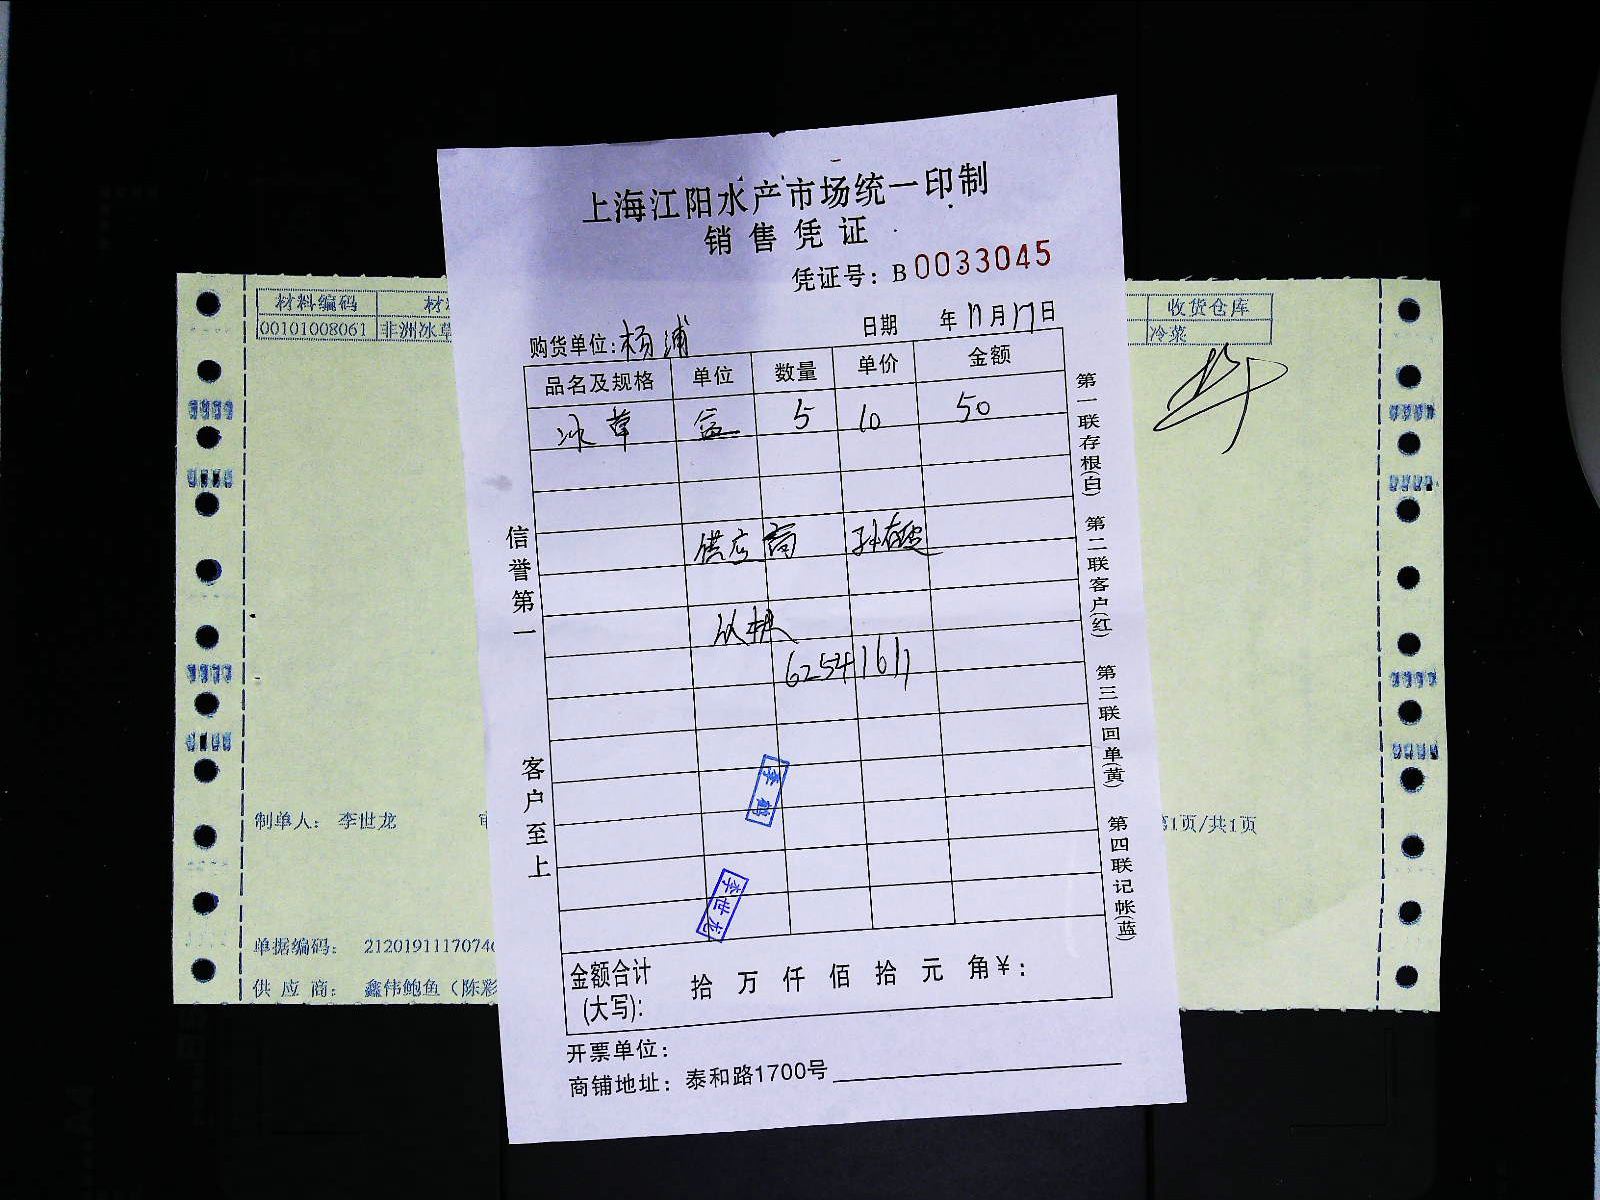 上海江阳水产市场统一印制
销售凭证
凭证号：B0033045
购货单位：杨浦 日期 年11月17日
品名及规格 单位 数量 单价 金额
冰草 盒 5 10 50
供应商
62541611
李鹤
李世龙
金额合计(大写)： 拾 万 仟 佰 拾 元 角￥：
开票单位：
商铺地址：泰和路1700号
信誉第一 客户至上
第一联存根(白) 第二联客户(红) 第三联回单(黄) 第四联记帐(蓝)
材料编码
00101008061 非洲冰草
制单人： 李世龙
单据编码： 2120191117074
供应商： 鑫伟鲍鱼（陈彩
收货仓库
冷菜
第1页/共1页